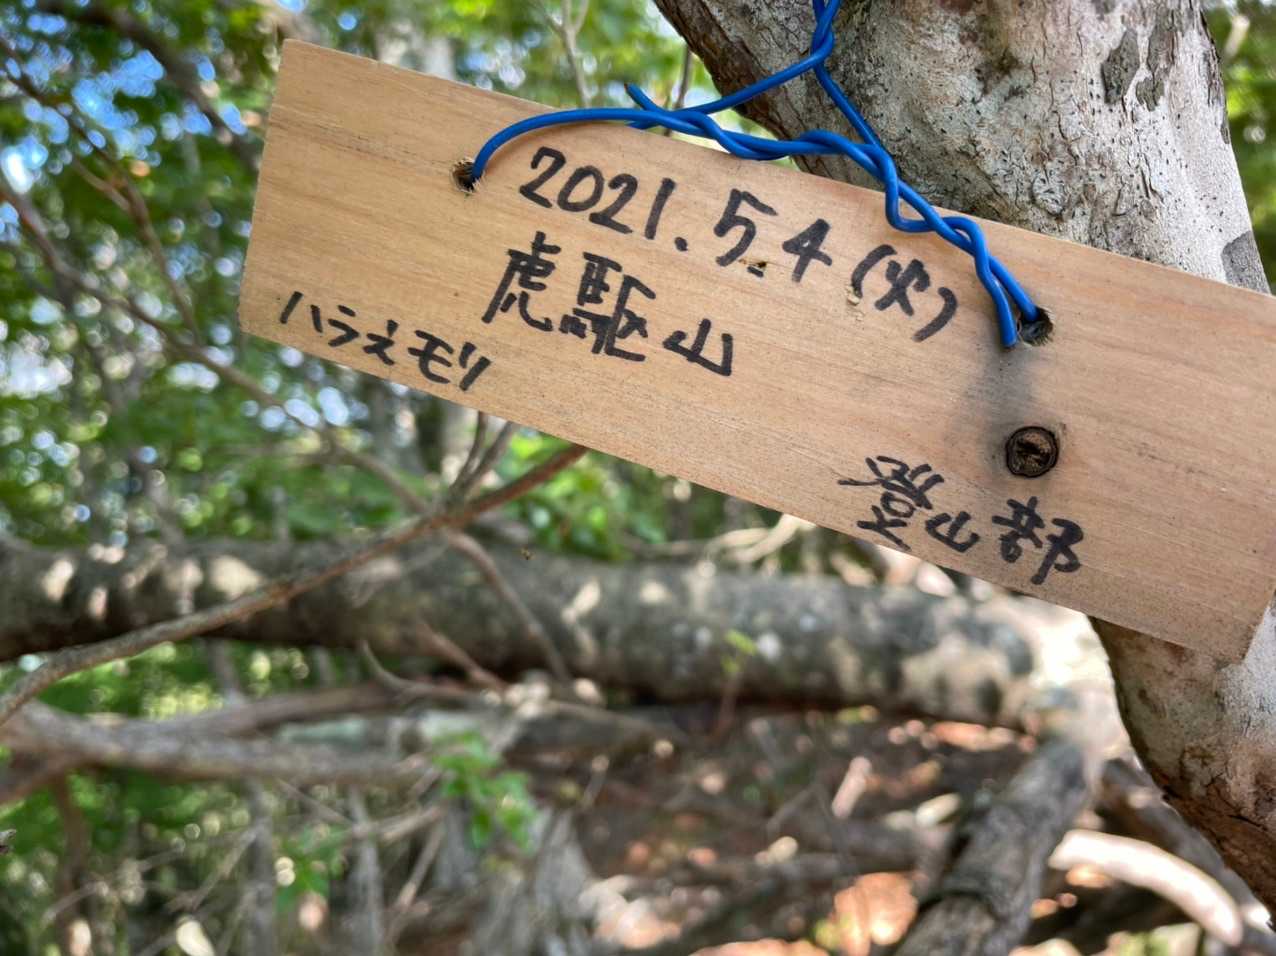 2021.5.4(火)
虎駆山
ハラネモリ
登山部